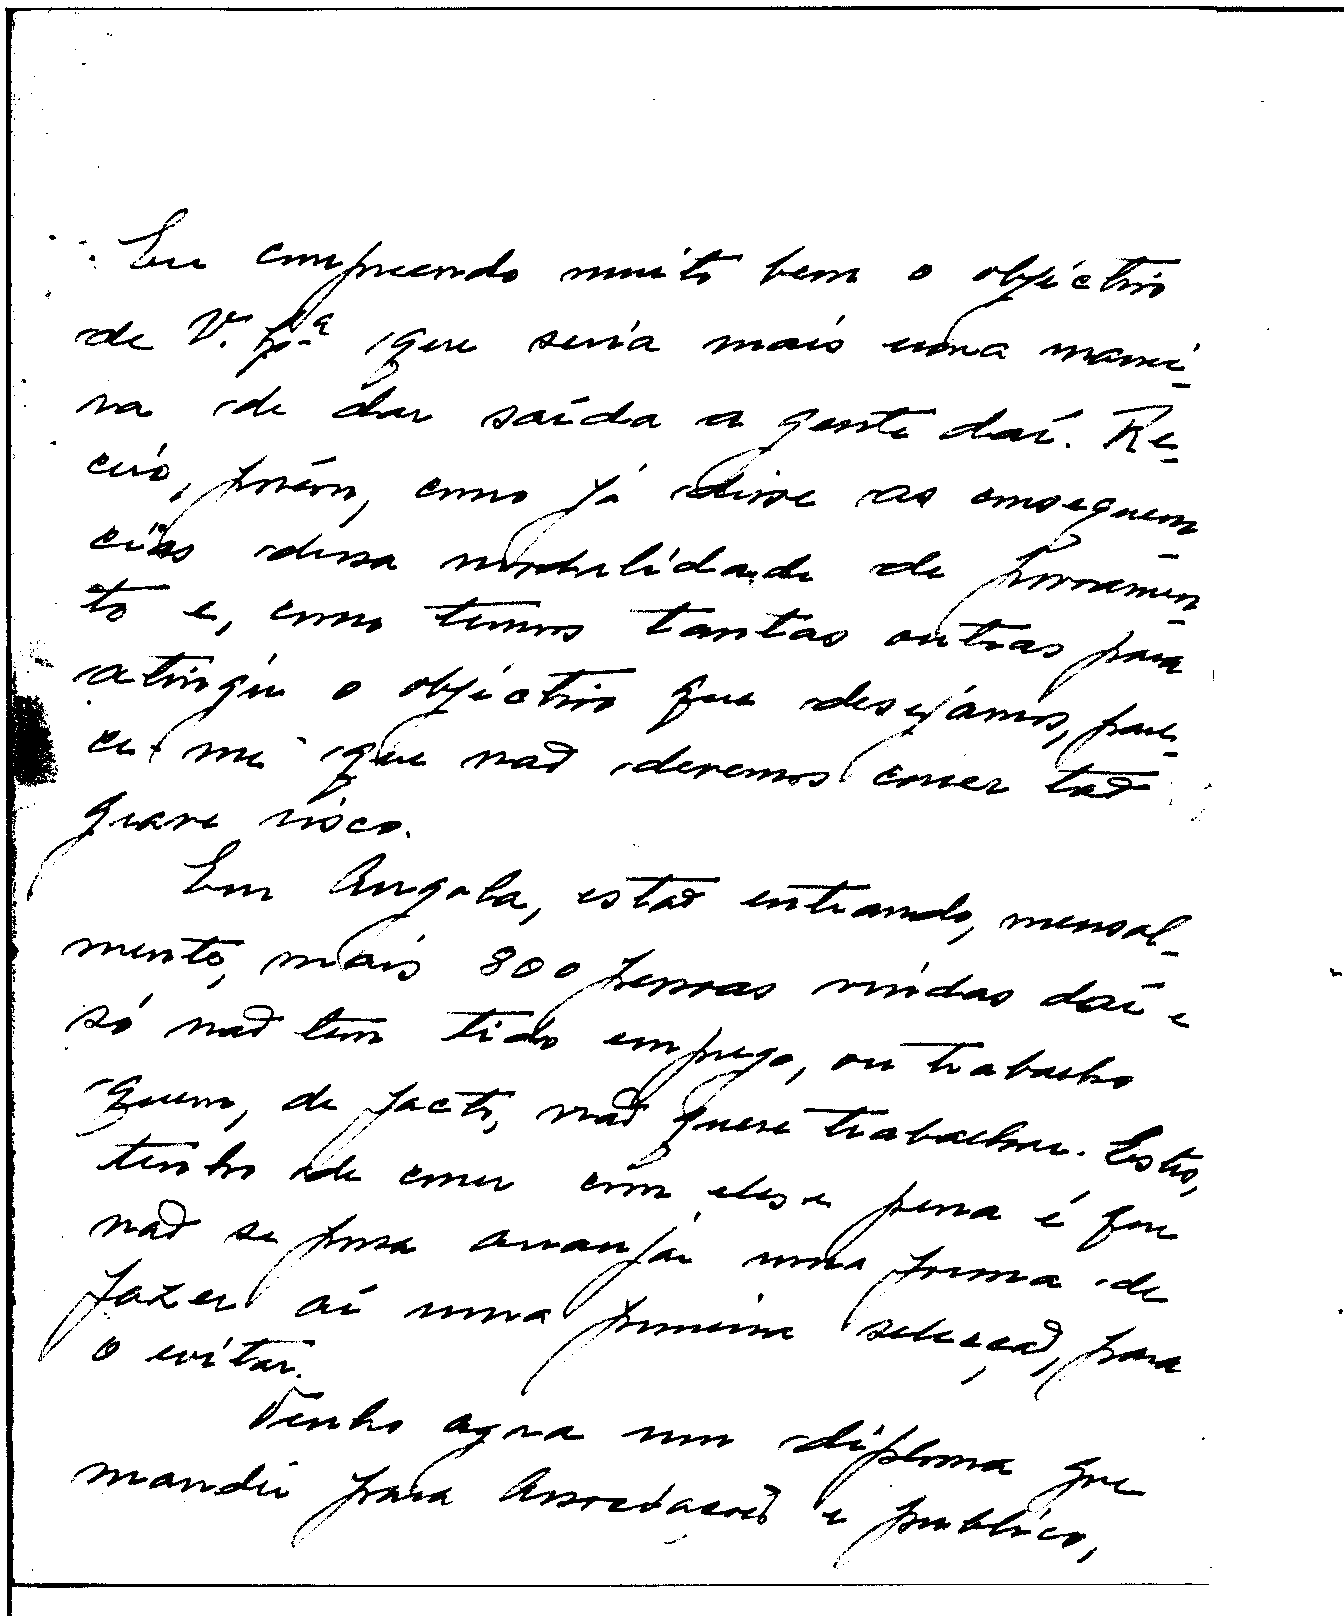 Eu compreendo muito bem o objectivo
de V. Exª que seria mais uma manei-
ra de dar saída a gente daí. Re-
ceio, porém, como já disse as consequen-
cias dessa modalidade de povoamen-
to e, como temos tantas outras para
atingir o objectivo que desejámos, pare-
ce-me que não devemos correr tão
grave risco.
Em Angola, estão entrando, mensal-
mente, mais 800 pessoas vindas daí e
só não tem tido emprego, ou trabalho
quem, de facto, não quere trabalhar. Estes,
tenho de correr com eles e pena é que
não se possa arranjar uma forma de
fazer aí uma primeira selecção, para
o evitar.
Tenho agora um diploma que
mandei para Associações e publico,